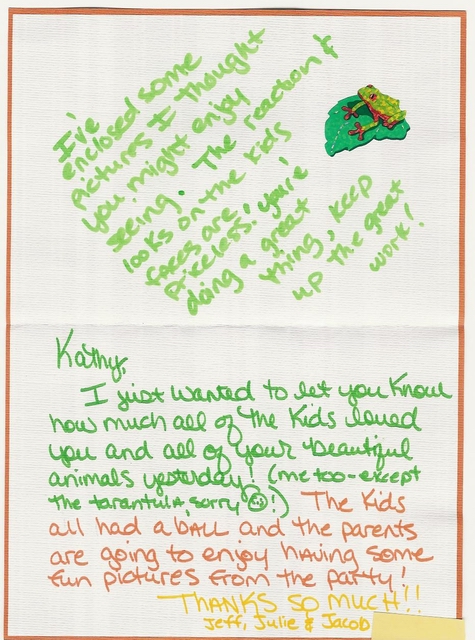 I've
enclosed some
pictures I thought
you might enjoy
seeing. The reaction &
looks on the kids
faces are
priceless! You're
doing a great
thing, keep
up the great
work!
Kathy,
I just wanted to let you know
how much all of the kids loved
you and all of your beautiful
animals yesterday! (me too-except
the tarantula, sorry ☺!) The kids
all had a ball and the parents
are going to enjoy having some
fun pictures from the party!
THANKS SO MUCH!!
Jeff, Julie & Jacob